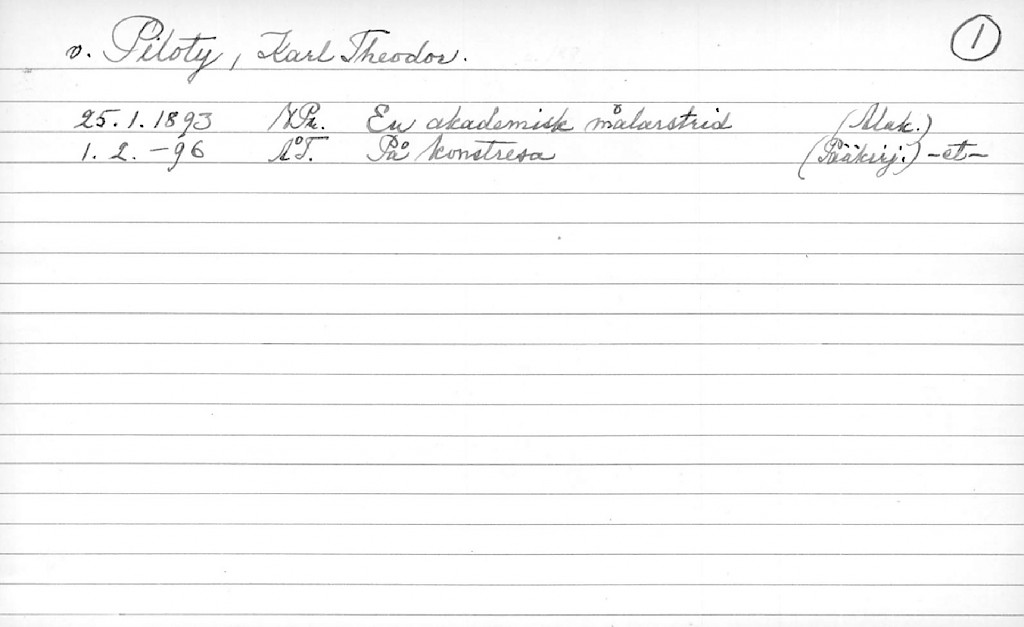 v. Piloty, Karl Theodor. 1
25.1.1893 N.Pr. En akademisk målarstrid (Alak.)
1. 2. -96 ÅT. På konstresa (Pääkirj.) -et-